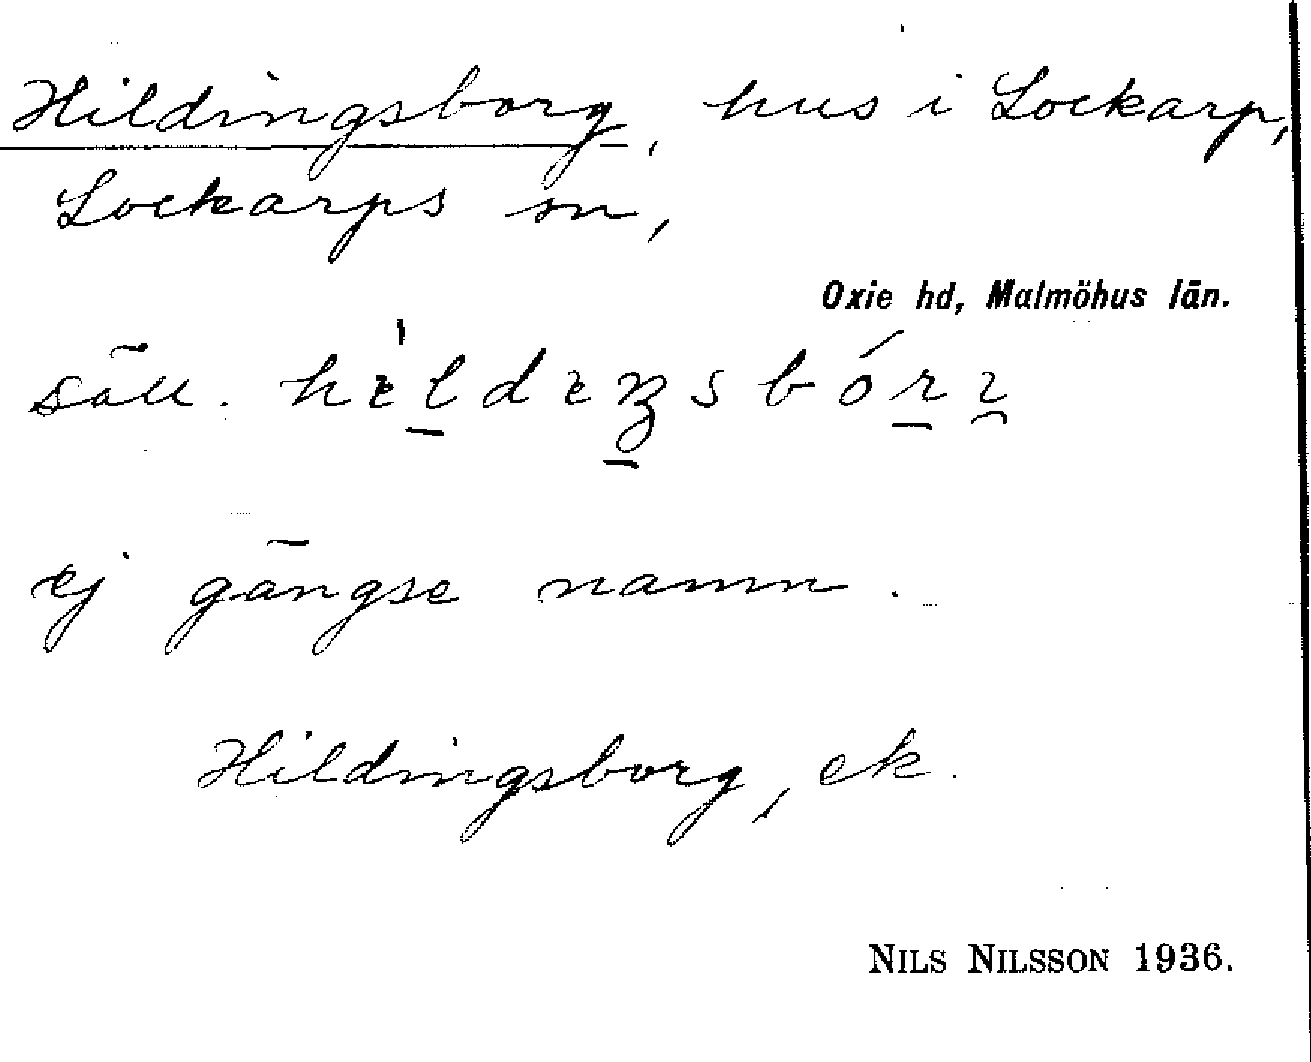 Hildingsborg, hus i Lockarp,
Lockarps sn,
Oxie hd, Malmöhus län.
säll.
ej gängse namn.
Hildingsborg, ek.
NILS NILSSON 1936.